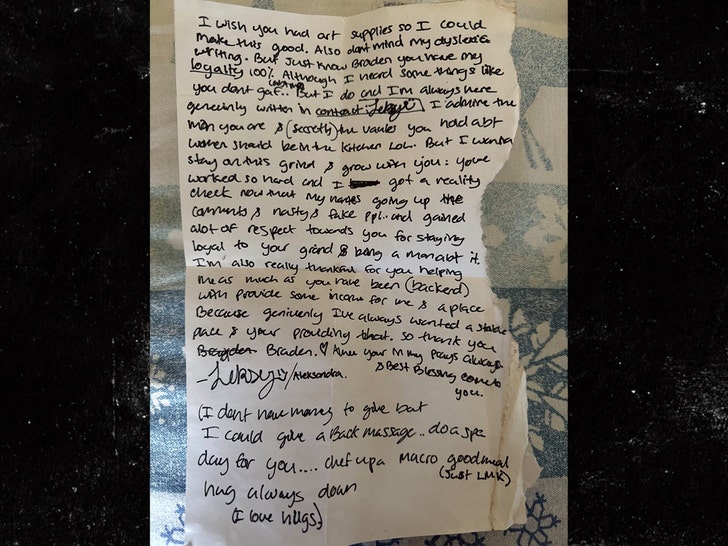 I wish you had art supplies so I could
make this good. Also dont mind my dyslexic
writing. But Just know Braden you have my
loyalty 100%. Although I heard some things like
you dont gaf.. But I do and I'm always here
genuinly written in contract I admire the
man you are & (secretly) the values you hold abt
women should be in the kitchen LoL. But I wanna
stay on this grind & grow with you: youve
worked so hard and I got a reality
check now that my names going up the
comments, & nasty & fake ppl.. and gained
alot of respect towards you for staying
loyal to your grind & being a man abt it.
I'm also really thankful for you helping
me as much as you have been (backend)
with provide some income for me & a place
Because genuienly I've always wanted a stable
pace & your providing that. so thank you
Braden. ♡ your in my prays always
& Best Blessing come to
you.
/Aleksandra.
(I dont have money to give but
I could give a Back massage.. do a spa
day for you.... chef up a macro good meal
(Just LMK)
hug always down
(I love hugs)